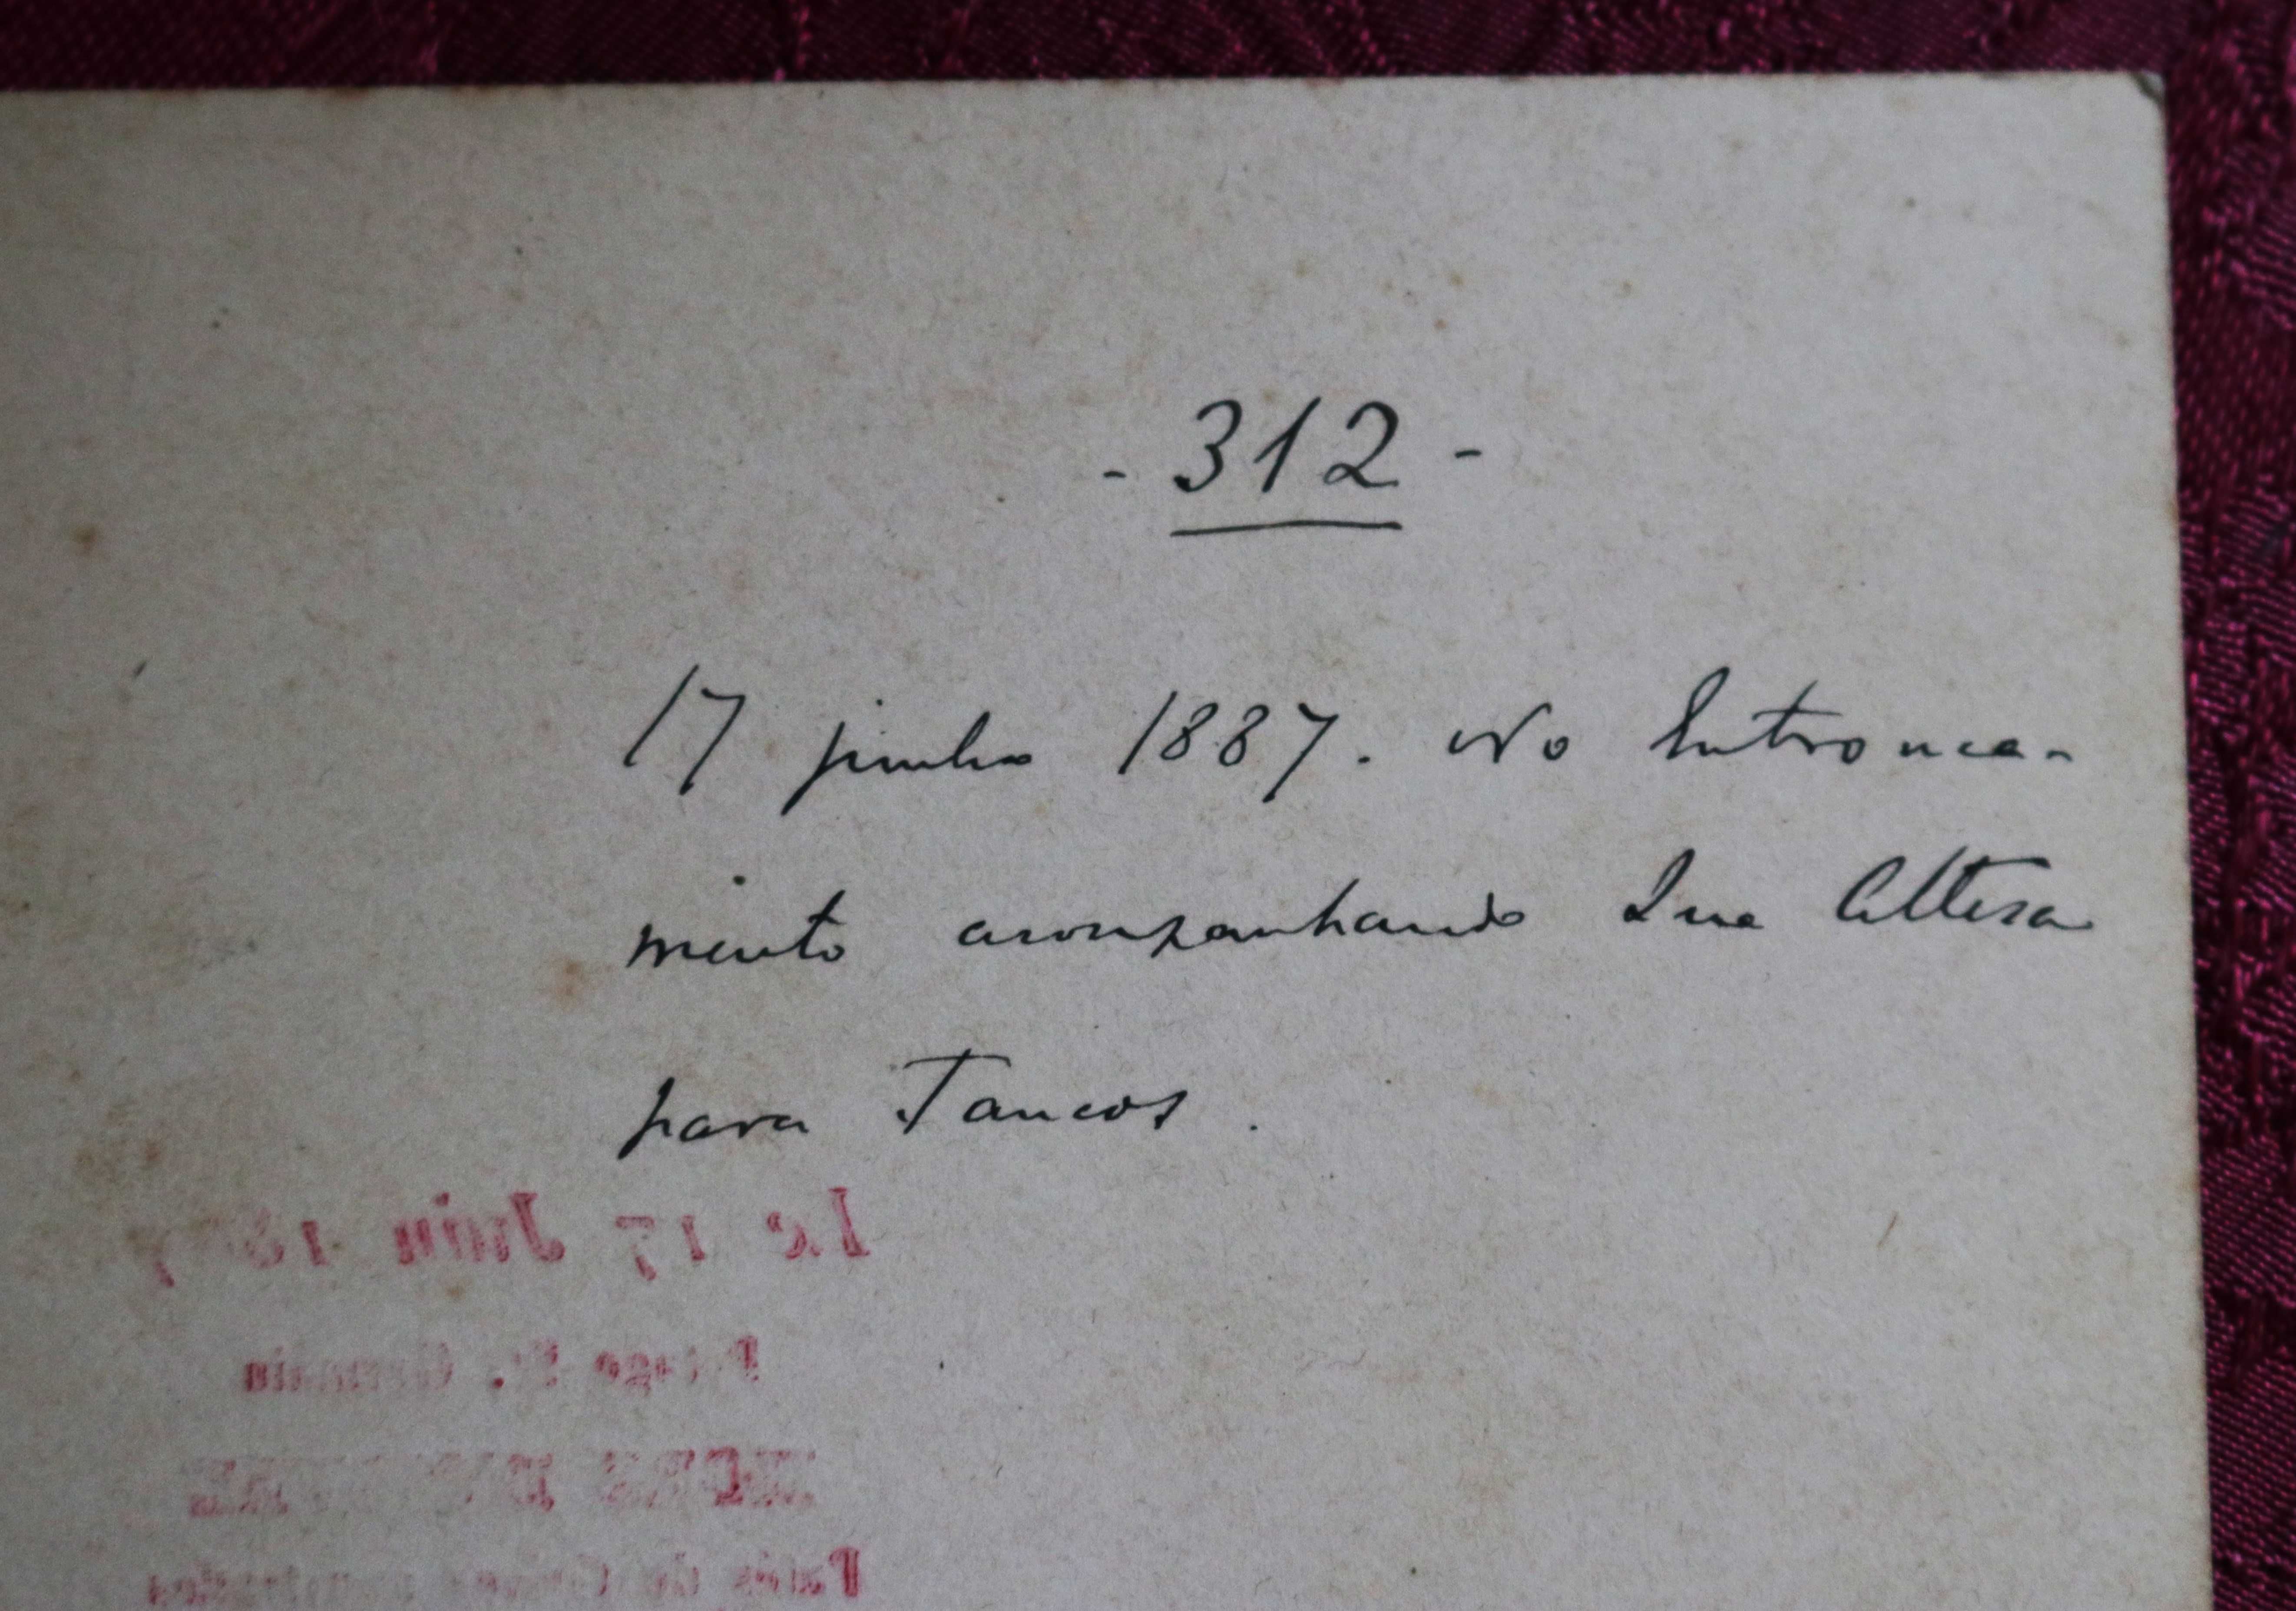 - 312 -
17 junho 1887. No Entronca-
mento acompanhando Sua Alteza
para Tancos.
Le 17 Juin 1887
Potage St. Germain